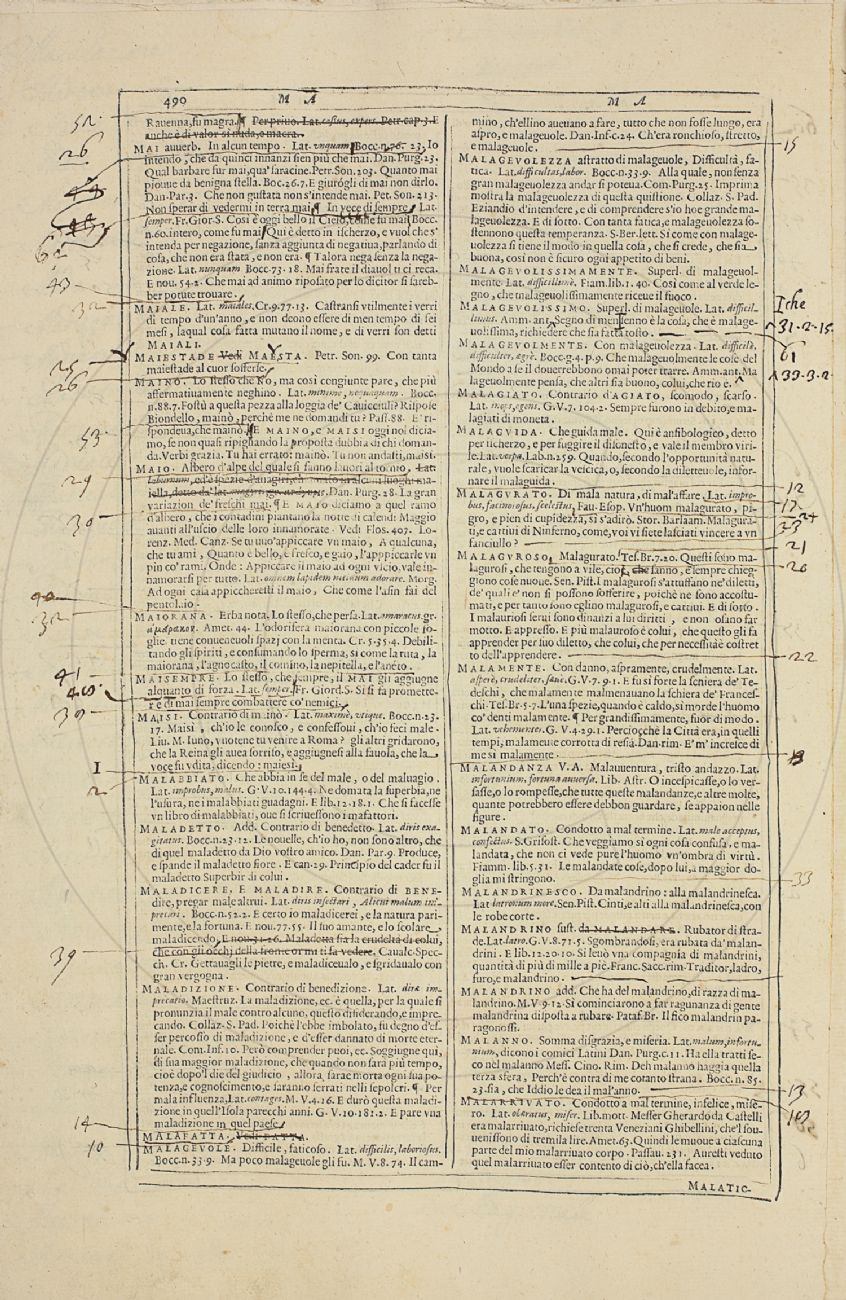 490 M A
M A
Rauenna, fu magra.¶ Per priuo. Lat. cassus, expers. Petr. cap. 3. E
anche è di valor sì nuda, e macra.
MAI auuerb. In alcun tempo. Lat. vnquam Bocc. n. 76. 23. Io
intendo, che da quinci innanzi sien più che mai. Dan. Purg. 23.
Qual barbare fur mai, qua' saracine. Petr. Son. 203. Quanto mai
piouue da benigna stella. Boc. 26. 7. E giurógli di mai non dirlo.
Dan. Par. 3. Che non gustata non s'intende mai. Pet. Son. 213.
Non sperar di vedermi in terra mai.¶ In vece di sempre. Lat.
semper. Fr. Gior. S. Così è oggi bello il Cielo, come fu mai Bocc.
n. 60. intero, come fu mai Qui è detto in ischerzo, e vuol che s'
intenda per negazione, sanza aggiunta di negatiua, parlando di
cosa, che non era stata, e non era. ¶ Talora nega senza la nega-
zione. Lat. nunquam Bocc. 73. 18. Mai frate il diauol ti ci reca.
E nou. 54. 2. Che mai ad animo riposato per lo dicitor si sareb-
ber potute trouare.
MAIALE. Lat. maialis. Cr. 9. 77. 13. Castransi vtilmente i verri
di tempo d'un'anno, e non deono essere di men tempo di sei
mesi, laqual cosa fatta mutano il nome, e di verri son detti
MAIALI.
MAIESTADE Vedi MAESTA. Petr. Son. 99. Con tanta
maiestade al cuor s'offerse.
MAINO. Lo stesso che NO, ma così congiunte pare, che più
affermatiuamente neghino. Lat. minime, nequaquam. Bocc.
n. 88. 7. Fostù a questa pezza alla loggia de' Cauicciuli? Rispose
Biondello, mainò, perchè me ne domandi tu? Pass. 88. E' ri-
spondeua, che mainò. E MAINO, e MAISI oggi noi dicia-
mo, se non quasi ripigliando la proposta dubbia di chi doman-
da. Verbi grazia. Tu hai errato: mainò. Tu non andasti, maisì.
MAIO. Albero d'alpe del quale si fanno lauori al tornio, Lat.
laburnum, ed è spezie d'anagiri, chiamato in alcuni luoghi ma-
iella, detto da' lat. Dan. Purg. 28. La gran
variazion de' freschi mai. ¶ E MAIO diciamo a quel ramo
d'albero, che i contadini piantano la notte di calendi Maggio
auanti all'uscio delle loro innamorate. Vedi Flos. 407. Lo-
renz. Med. Canz. Se tu uuo'appiccare vn maio, A qualcuna,
che tu ami, Quanto è bello, e fresco, e gaio, l'appiccarle vn
pin co' rami. Onde: Appiccare il maio ad ogni vscio, vale in-
namorarsi per tutto. Lat. omnem lapidem nocturnum adorare. Morg.
Ad ogni casa appiccheresti il maio, Che come l'asin fai del
pentolaio.
MAIORANA. Erba nota. Lo stesso, che persa. Lat. amaracus. gr.
ἀμάρακον. Amet. 44. L'odorifera maiorana con piccole fo-
glie. tiene conueneuoli spazj con la menta. Cr. 5. 35. 4. Debili-
tando gli spiriti, e consumando lo sperma, sì come la ruta, la
maiorana, l'agnocasto, il comino, la nepitella, e l'aneto.
MAISEMPRE. Lo stesso, che sempre, il MAI gli aggiugne
alquanto di forza. Lat. semper. Fr. Giord. S. Si si fa promette-
re di mai sempre combattere co' nemici.
MAISI. Contrario di mainò. Lat. maximè, vtique. Bocc. n. 23.
17. Maisì, ch'io le conosco, e confessoui, ch'io feci male.
Liu. M. Iuno, vuotene tu venire a Roma? gli altri gridarono,
che la Reina gli auea fornito, e aggiugnesi alla fauola, che la
voce fu vdita, dicendo: maiesì.
MALABBIATO. Che abbia in se del male, o del maluagio.
Lat. improbus, malus. G. V. 10. 144. 4. Ne domata la superbia, ne
l'usura, ne i malabbiati guadagni. E lib. 12. 18. 1. Che si facesse
vn libro di malabbiati, oue si scriuessono i mafattori.
MALADETTO. Add. Contrario di benedetto. Lat. diris exa-
gitatus. Bocc. n. 23. 12. Le nouelle, ch'io ho, non sono altro, che
di quel maladetto da Dio vostro amico. Dan. Par. 9. Produce,
e spande il maladetto fiore. E can. 29. Principio del cader fu il
maladetto Superbir di colui.
MALADICERE, E MALADIRE. Contrario di BENE-
dire, pregar male altrui. Lat. diris insectari, Alicui malum im-
precari. Bocc. n. 52. 2. E certo io maladicerei, e la natura pari-
mente, e la fortuna. E nou. 77. 55. Il suo amante, e lo scolare
maladicendo. E nou. 31. 26. Maladetta sia la crudeltà di colui,
che con gli occhi della fronte or mi ti fa vedere. Caualc. Spec-
ch. Cr. Gettauagli le pietre, e maladiceualo, e sgridaualo con
gran vergogna.
MALADIZIONE. Contrario di benedizione. Lat. diræ im-
precatio. Maestruz. La maladizione, ec. è quella, per la quale si
pronunzia il male contro alcuno, questo disiderando, e impre-
cando. Collaz. S. Pad. Poichè l'ebbe imbolato, fu degno d'es-
ser percosso di maladizione, e d'esser dannato di morte eter-
nale. Com. Inf. 10. Però comprender puoi, ec. Soggiugne qui,
di sua maggior maladizione, che quando non sarà più tempo,
cioè dopo 'l die del giudicio, allora, sarae morta ogni sua po-
tenza, e cognoscimento, e saranno serrati nelli sepolcri. ¶ Per
mala influenza, Lat. contages. M. V. 4. 16. E durò questa maladi-
zione in quell'Isola parecchi anni. G. V. 10. 181. 2. E pare vna
maladizione in quel paese.
MALAFATTA. Vedi FATTA.
MALAGEVOLE. Difficile, faticoso. Lat. difficilis, laboriosus.
Bocc. n. 33. 9. Ma poco malageuole gli fu. M. V. 8. 74. Il cam-
mino, ch'ellino aueuano a fare, tutto che non fosse lungo, era
aspro, e malageuole. Dan. Inf. c. 24. Ch'era ronchioso, stretto,
e malageuole.
MALAGEVOLEZZA astratto di malageuole, Difficultà, fa-
tica. Lat. difficultas, labor. Bocc. n. 33. 9. Alla quale, non senza
gran malageuolezza andar si poteua. Com. Purg. 25. Imprima
mostra la malageuolezza di questa quistione. Collaz. S. Pad.
Eziandio d'intendere, e di comprendere s'io hoe grande ma-
lageuolezza. E di sotto. Con tanta fatica, e malageuolezza so-
stennono questa temperanza. S. Ber. lett. Sì come con malage-
uolezza si tiene il modo in quella cosa, che si crede, che sia
buona, così non è sicuro ogni appetito di beni.
MALAGEVOLISSIMAMENTE. Superl. di malageuol-
mente. Lat. difficilimè. Fiam. lib. 1. 40. Così come al verde le-
gno, che malageuolissimamente riceue il fuoco.
MALAGEVOLISSIMO. Superl. di malageuole. Lat. difficil-
limus. Amm. ant. Segno di men senno è la cosa, che è malage-
uolissima, richiedere che sia fatta tosto.
MALAGEVOLMENTE. Con malageuolezza. Lat. difficilè,
difficulter, ægrè. Bocc. g. 4. p. 9. Che malageuolmente le cose del
Mondo a se il douerrebbono omai poter trarre. Amm. ant. Ma
lageuolmente pensa, che altri sia buono, colui, che rio è.
MALAGIATO. Contrario d'AGIATO, scomodo, scarso.
Lat. inops, egens. G. V. 7. 104. 2. Sempre furono in debito, e ma-
lagiati di moneta.
MALAGVIDA. Che guida male. Qui è anfibologico, detto
per ischerzo, e per fuggire il disonesto, e vale il membro viri-
le. Lat. verpa. Lab. n. 259. Quando, secondo l'opportunità natu-
rale, vuole scaricar la vescica, o, secondo la dilettouole, infor-
nare il malaguida.
MALAGVRATO. Di mala natura, di mal'affare. Lat. impro-
bus, facinorosus, scelestus. Fau. Esop. Vn'huom malagurato, pi-
gro, e pien di cupidezza, sì s'adirò. Stor. Barlaam. Malagura-
ti, e cattiui di Ninferno, come, voi vi siete lasciati vincere a vn
fanciullo?
MALAGVROSO. Malagurato. Tes. Br. 7. 20. Questi sono ma-
lagurosi, che tengono a vile, ciò, che fanno, e sempre chieg-
giono cose nuoue. Sen. Pist. I malagurosi s'attuffano ne' diletti,
de' quali e' non si possono sofferire, poichè ne sono accostu-
mati, e per tanto sono eglino malagurosi, e cattiui. E di sotto.
I malauriosi serui sono dinanzi a lui diritti, e non osano far
motto. E appresso. E più malauroso è colui, che questo gli fa
apprender per suo diletto, che colui, che per necessità è costret
to dell'apprendere.
MALAMENTE. Con danno, aspramente, crudelmente. Lat.
asperè, crudeliter, sæuè. G. V. 7. 91. 1. E fu sì forte la schiera de' Te-
deschi, che malamente malmenauano la schiera de' Frances-
chi. Tes. Br. 5. 7. L'una spezie, quando è caldo, sì morde l'huomo
co' denti malamente. ¶ Per grandissimamente, fuor di modo.
Lat. vehementer. G. V. 4. 29. 1. Perciocchè la Città era, in quelli
tempi, malamente corrotta di resia. Dan. rim. E' m' incresce di
me sì malamente.
MALANDANZA V. A. Malauuentura, tristo andazzo. Lat.
infortunium, fortuna auuersa. Lib. Astr. O incespicasse, o lo ver-
sasse, o lo rompesse, che tutte queste malandanze, e altre molte,
quante potrebbero essere debbon guardare, se appaion nelle
figure.
MALANDATO. Condotto a mal termine. Lat. male acceptus,
confectus. S. Grisost. Che veggiamo sì ogni cosa confusa, e ma-
landata, che non ci vede pure l'huomo vn'ombra di virtù.
Fiamm. lib. 5. 31. Le malandate cose, dopo lui, a maggior do-
glia mi stringono.
MALANDRINESCO. Da malandrino: alla malandrinesca.
Lat latronum more. Sen. Pist. Cinti, e alti alla malandrinesca, con
le robe corte.
MALANDRINO sust. da MALANDARE. Rubator di stra-
de. Lat. latro. G. V. 8. 71. 5. Sgombrandosi, era rubata da' malan-
drini. E lib. 12. 20. 10. Si leuò vna compagnia di malandrini,
quantità di più di mille a piè. Franc. Sacc. rim. Traditor, ladro,
furo, e malandrino.
MALANDRINO add. Che ha del malandrino, di razza di ma-
landrino. M. V. 9. 12. Si cominciarono a far ragunanza di gente
malandrina disposta a rubare. Pataf. Br. Il fico malandrin pa-
ragonossi.
MALANNO. Somma disgrazia, e miseria. Lat. malum, infortu-
nium, dicono i comici Latini Dan. Purg. c. 11. Ha ella tratti se-
co nel malanno Mess. Cino. Rim. Deh malanno haggia quella
terza sfera, Perch'è contra di me cotanto strana. Bocc. n. 85.
23. sia, che Iddio le dea il mal'anno.
MALARRIVATO. Condotto a mal termine, infelice, mise-
ro. Lat. obæratus, miser. Lib. mott. Messer Gherardo da Castelli
era malarriuato, richiese trenta Veneziani Ghibellini, che'l sou-
uenissono di tremila lire. Amet. 63. Quindi le muoue a ciascuna
parte del mio malarriuato corpo. Passau. 231. Auresti veduto
quel malarriuato esser contento di ciò, ch'ella facea.
MALATIC-
52
26
62
43
32
25
26
53
29
30
40
32
41
40
39
I
2
39
14
10
15
I che
31.2.15
61
33.3.2
12
17
24
23
21
20
22
18
33
13